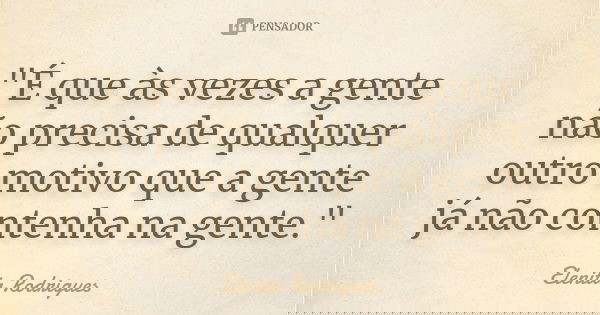 PENSADOR
"É que às vezes a gente
não precisa de qualquer
outro motivo que a gente
já não contenha na gente."
Elenita Rodrigues